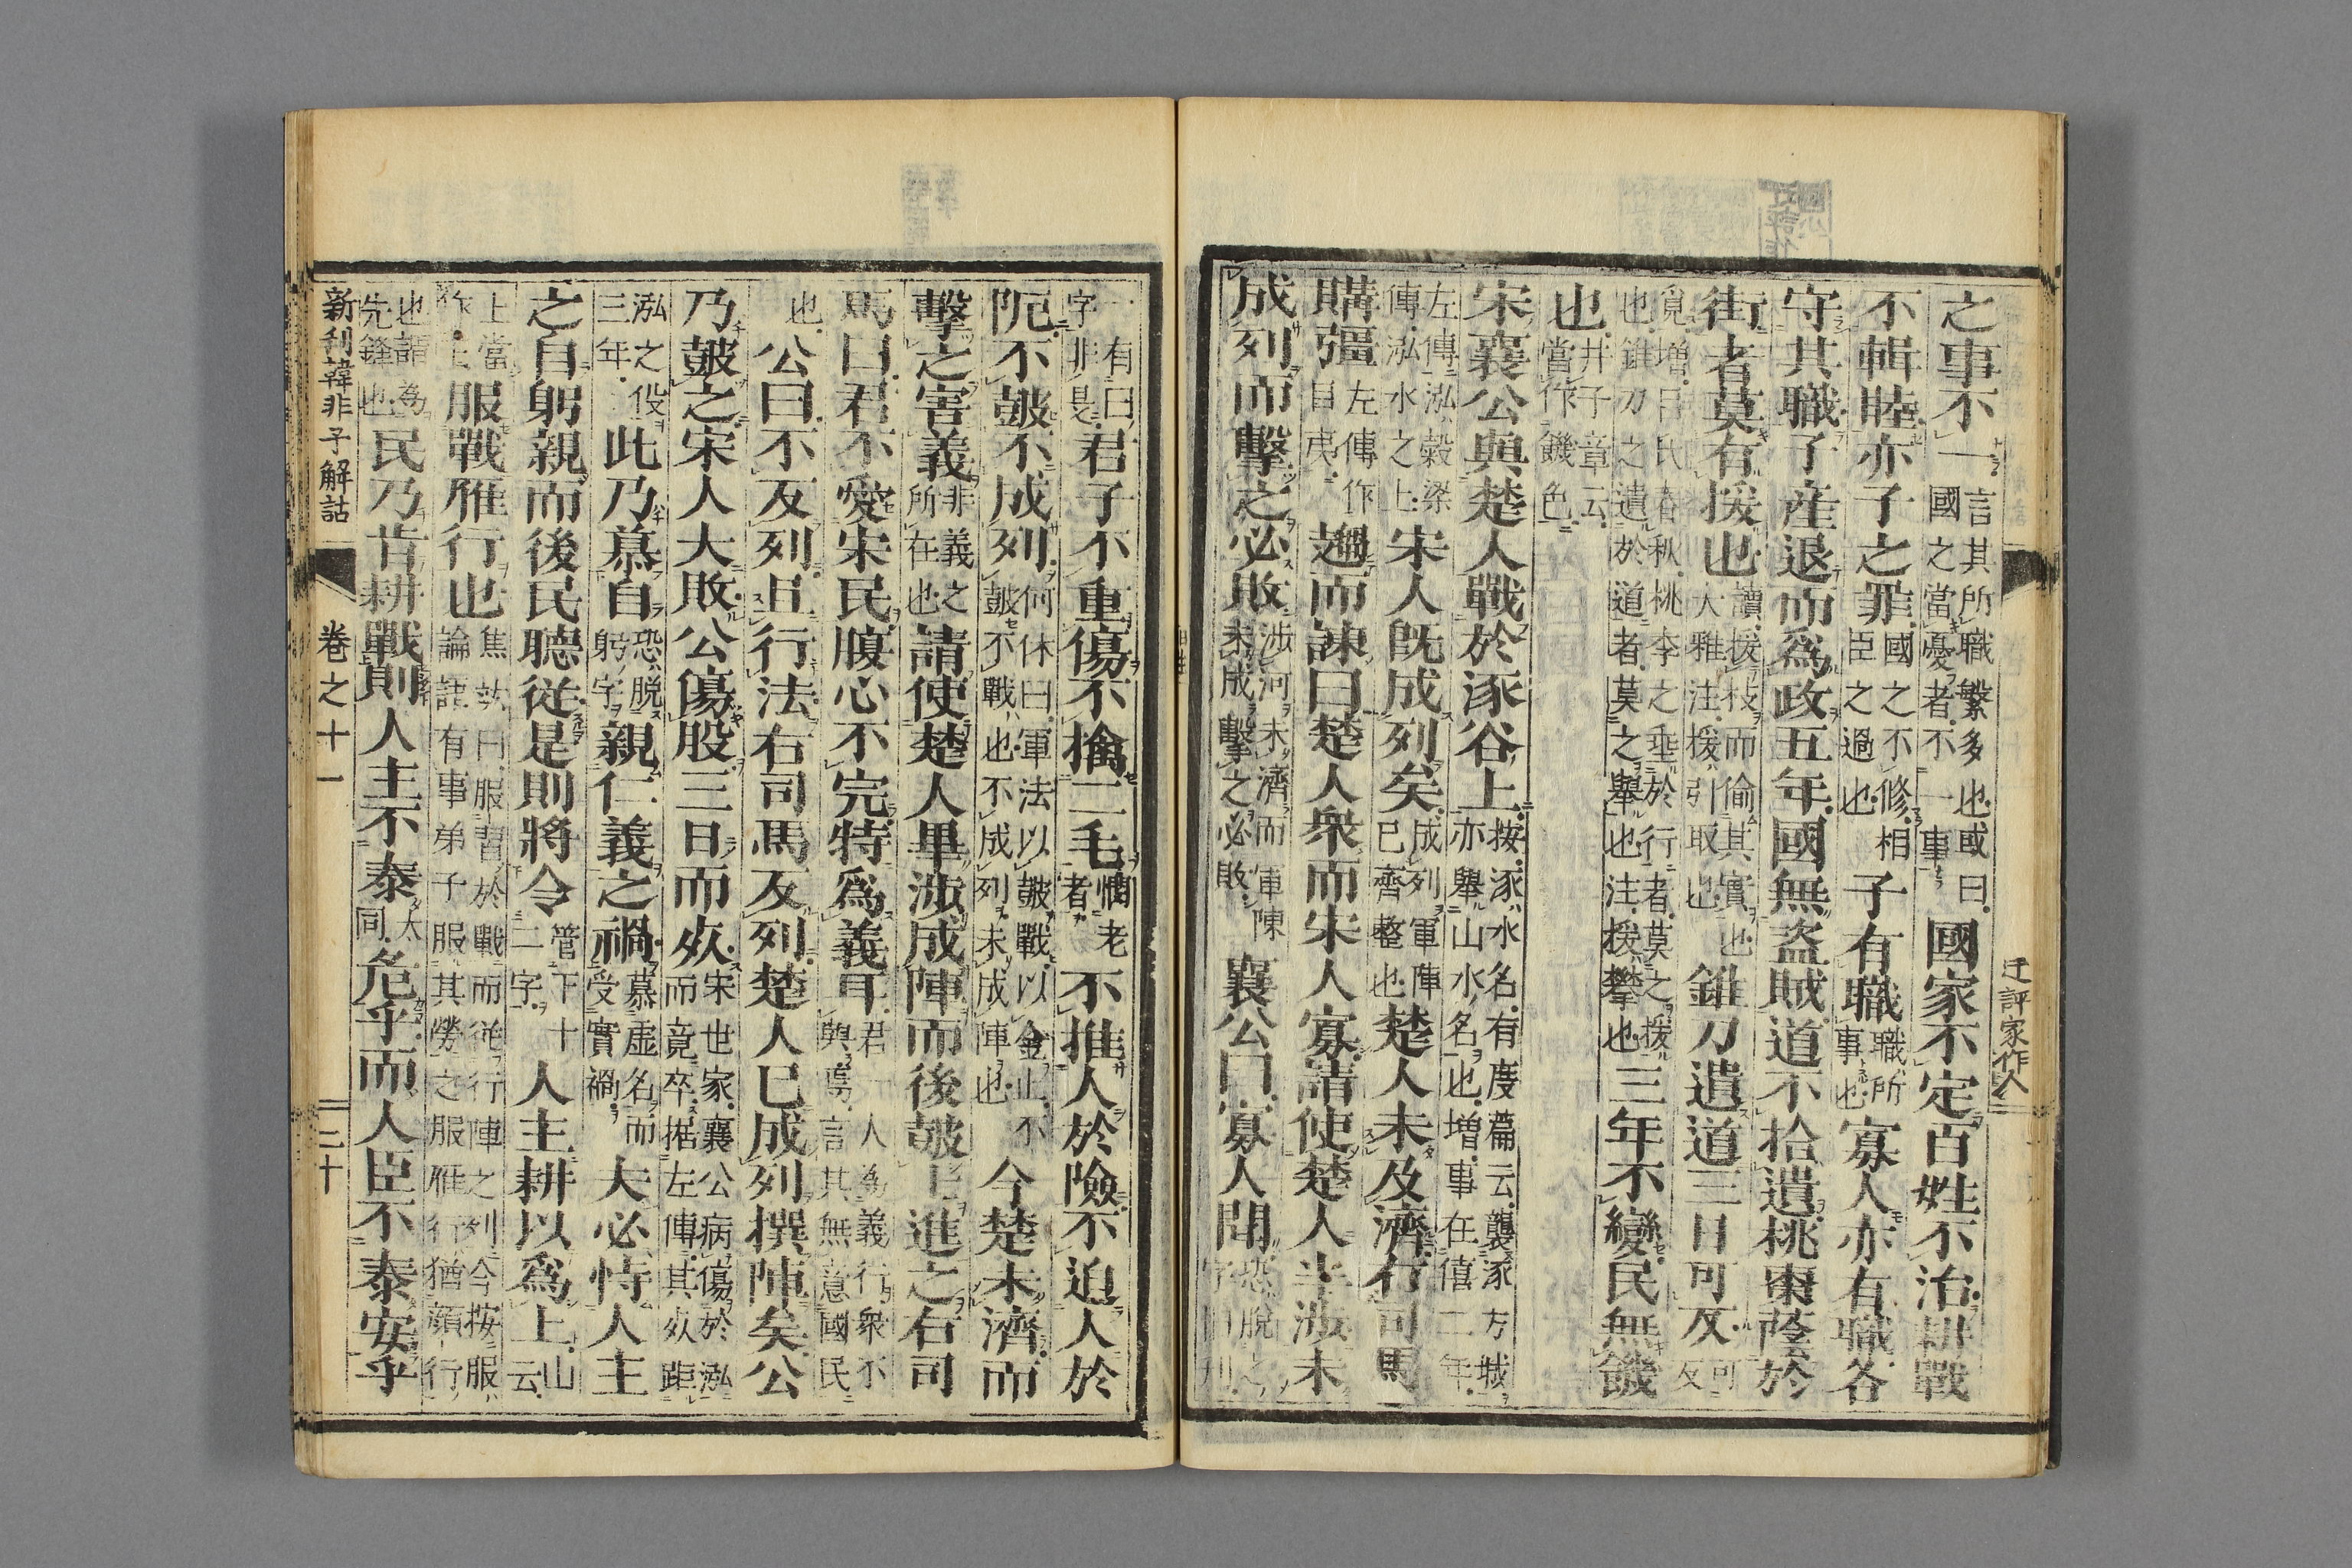 迂評家作人
之事不一言其所職繁多也或曰國之當憂者不一事國家不定百姓不治耕戰
不輯睦亦子之罪國之不修相臣之過也子有職職所事也寡人亦有職各
守其職子産退而爲政五年國無盜賊道不拾遺桃棗蔭於
街者莫有援也讀援彶而偷其實也大雅注援引取也錐刀遺道三日可反可反
覓增呂氏春秋桃李之垂於行者莫之援也錐刀之遺於道者莫之舉也注援攀也三年不變民無饑
也井子章云當作饑色
宋襄公與楚人戰於涿谷上按涿水名有度篇云襲涿方城亦舉山水名也增事在僖二年
左傳泓穀梁傳泓水之上宋人既成列矣成列軍陣已齊整也楚人未及濟右司馬
購彊左傳作目夷趨而諫曰楚人衆而宋人寡請使楚人半涉未
成列而擊之必敗涉河未濟而軍陳未成擊之必敗襄公曰寡人聞恐脫之
一有曰字非是君子不重傷不擒二毛憫老者不推人於險不迫人於
阨不鼓不成列何休曰軍法以鼓戰以金止不鼓不戰也不成列未成陣也今楚未濟而
擊之害義非義之所在也請使楚人畢涉成陣而後鼓士進之右司
馬曰君不愛宋民腹心不完特爲義耳君一人為義行衆不與焉言其無意國民
也公曰不反列且行法右司馬反列楚人已成列撰陣矣公
乃鼓之宋人大敗公傷股三日而死宋世家襄公病傷於泓而竟卒據左傳其死距
泓之役三年此乃慕自恐脫躬字親仁義之禍慕虛名而受實禍夫必恃人主
之自躬親而後民聽從是則將令管下十二字人主耕以爲上山云
上當作主服戰雁行也焦竑曰服習於戰而從行陣之列今按服論語有事弟子服其勞之服雁行猶顏行
也謂為先鋒也民乃肯耕戰則人主不泰大同危乎而人臣不泰安乎
新刻韓非子解詁 卷之十一 二十